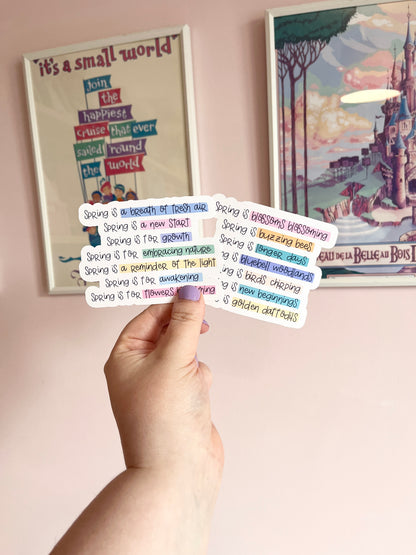 it's a small world
join
the
happiest
cruise that ever
sailed 'round
the world
EAU DE LA BELLE AU BOIS
SPRING IS a breath of fresh air
SPRING IS a new start
SPRING IS FOR growth
SPRING IS FOR embracing nature
SPRING IS a reminder of the light
SPRING IS FOR awakening
SPRING IS FOR flowers
SPRING IS blossoms blossoming
IS buzzing bees
IS longer days
IS bluebell woodlands
IS birds chirping
IS new beginnings
IS golden daffodils